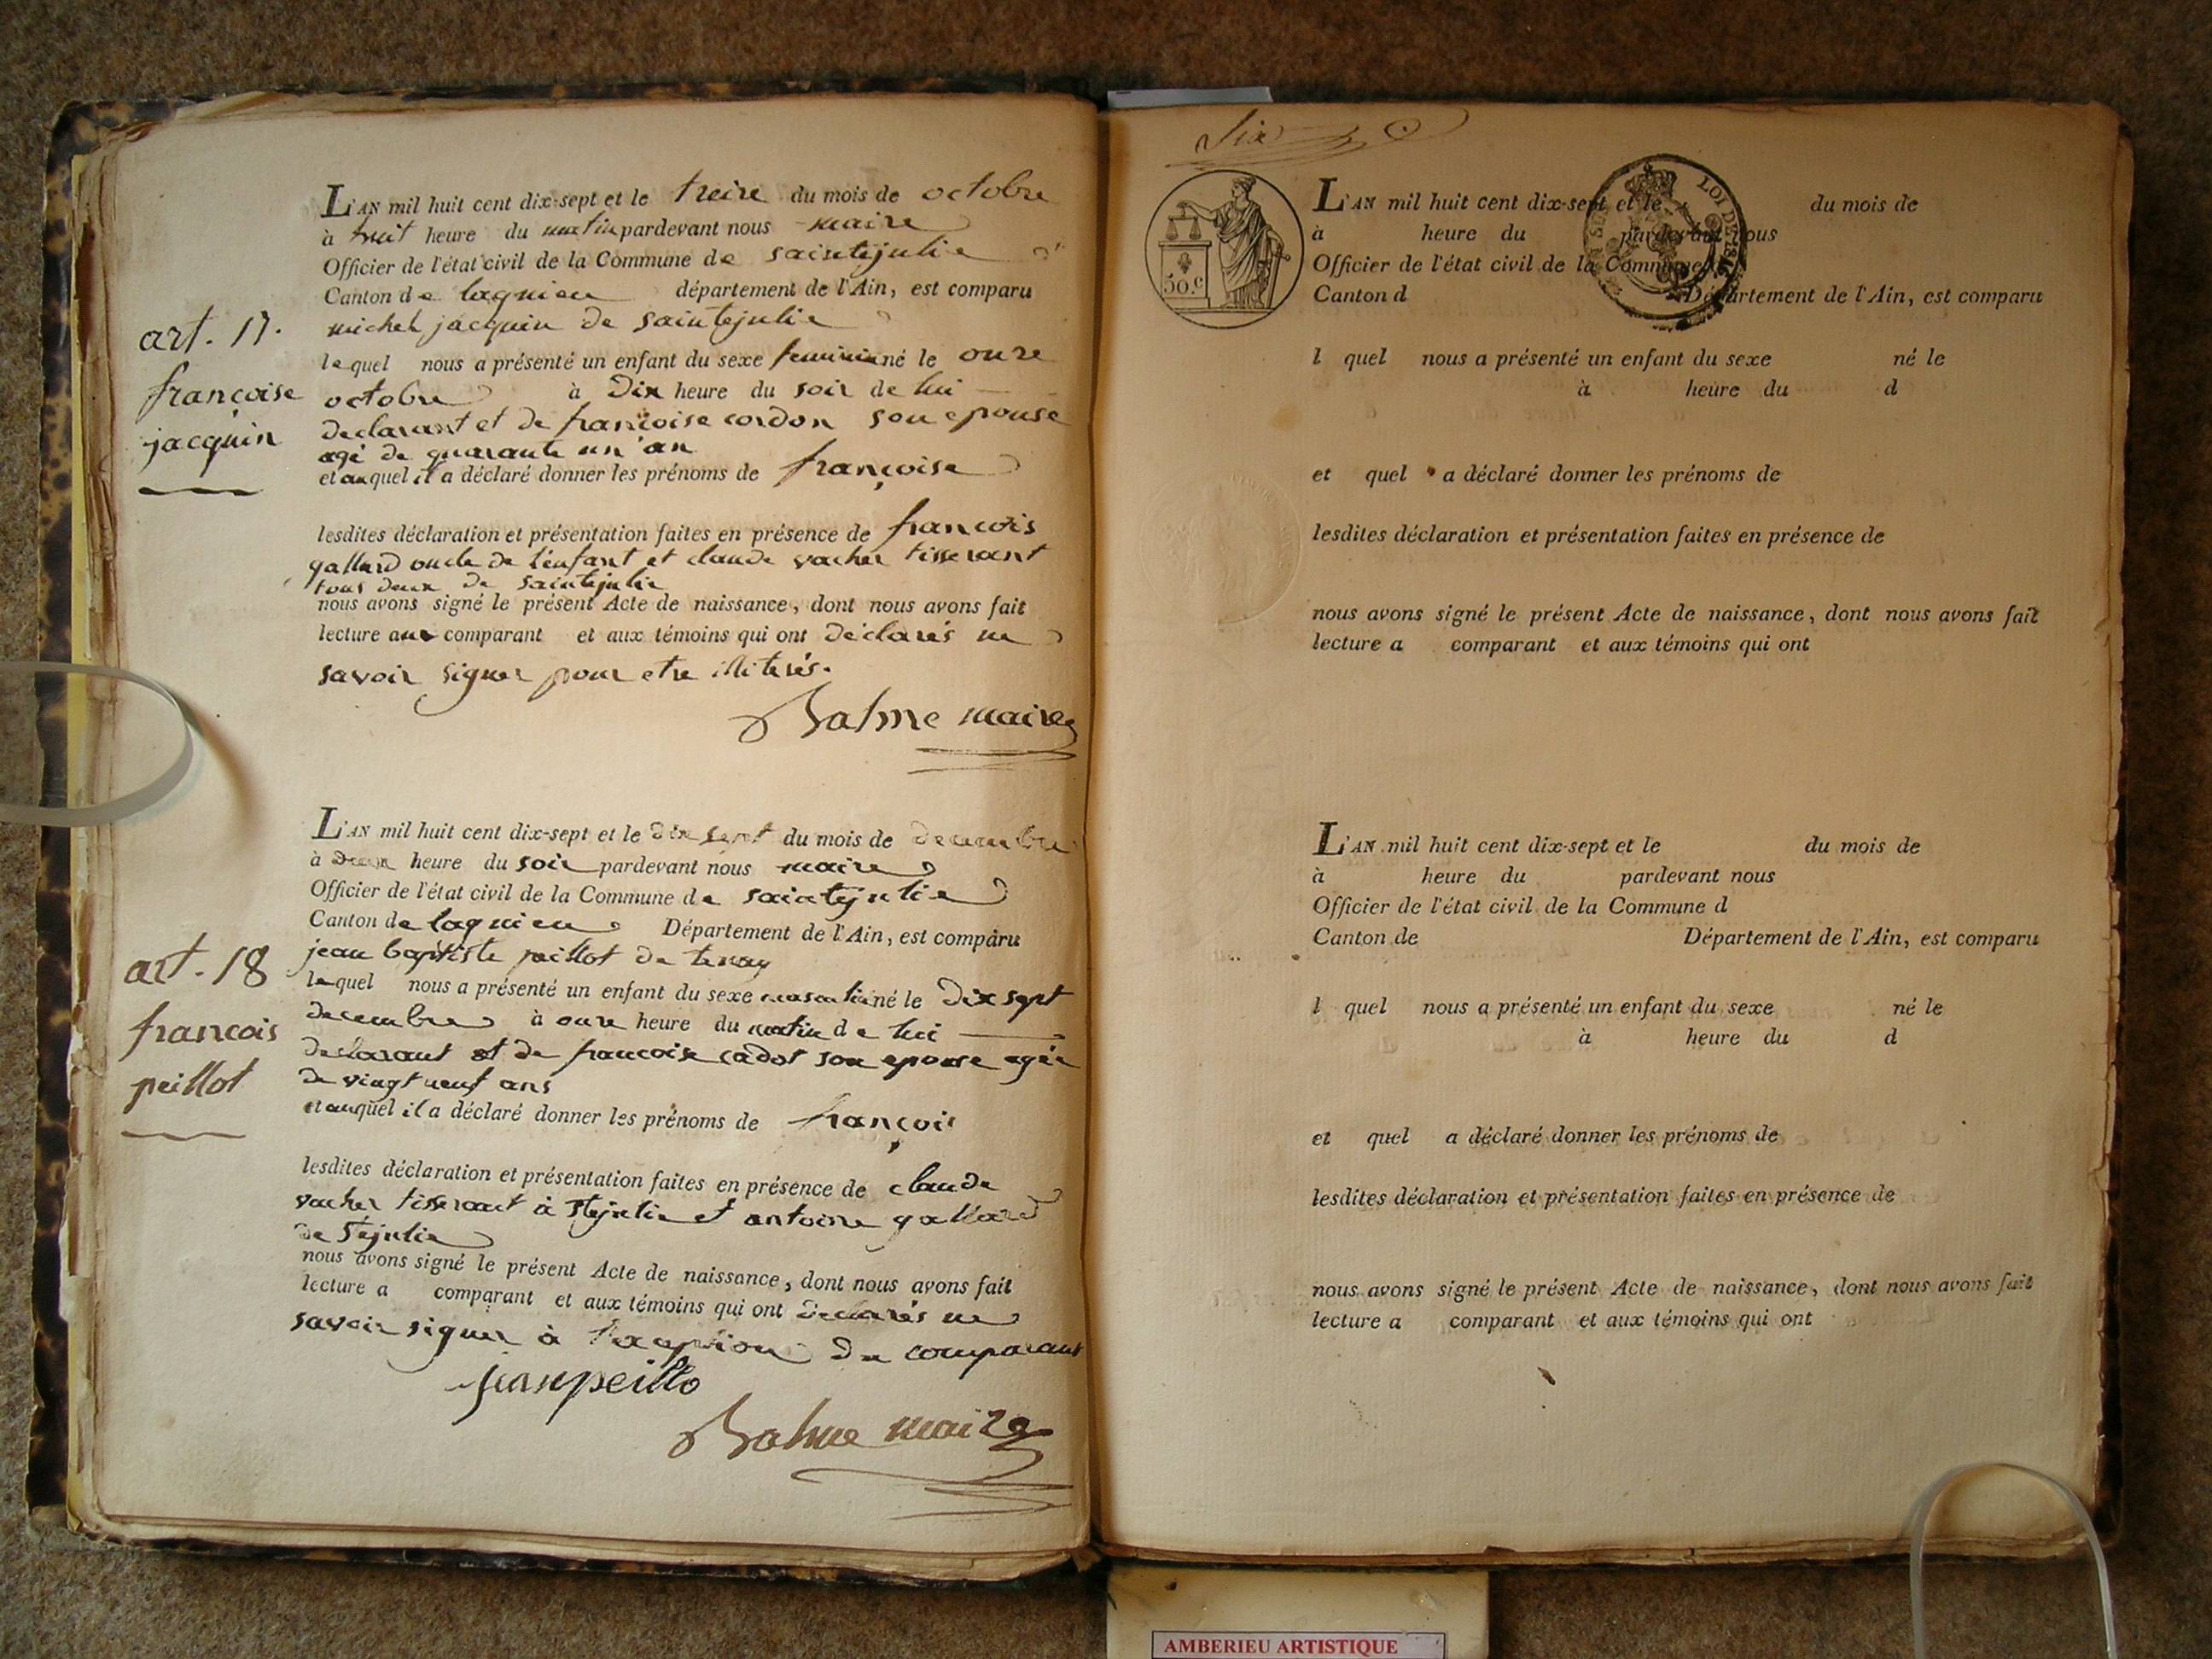 L'AN mil huit cent dix-sept et le treire du mois de octobre
à huit heure du matin pardevant nous maire
Officier de l'état civil de la Commune de saintejulie
Canton de lagnieu département de l'Ain, est comparu
michel jacquin de saintejulie
lequel nous a présenté un enfant du sexe feminin né le onre
octobre à Dix heure du soir de lui
declarant et de francoise cordon son epouse
agé de quarante un an
et auquel il a déclaré donner les prénoms de françoise
lesdites déclaration et présentation faites en présence de francois
gallard oncle de l'enfant et claude vacher tisserant
tous deux de saintejulie
nous avons signé le présent Acte de naissance, dont nous avons fait
lecture aux comparant et aux témoins qui ont déclarés ne
savoir signer pour etre illiterés.
Balme maire
art. 17.
françoise
jacquin
L'AN mil huit cent dix-sept et le dix sept du mois de decembre
à deux heure du soir pardevant nous maire
Officier de l'état civil de la Commune de saintejulie
Canton de lagnieu Département de l'Ain, est comparu
jean baptiste peillot de tenay
lequel nous a présenté un enfant du sexe masculin né le Dix sept
decembre à onre heure du matin de lui
declarant et de francoise cadot son epouse agée
de vingt neuf ans
et auquel il a déclaré donner les prénoms de françois
lesdites déclaration et présentation faites en présence de claude
vacher tisserant à stejulie et antoine gallard
de stejulie
nous avons signé le présent Acte de naissance, dont nous avons fait
lecture a comparant et aux témoins qui ont declarés ne
savoir signer à l'exception du comparant
jeanpeillo
Balme maire
art. 18
francois
peillot
Six
50.c
LOI DE
L'AN mil huit cent dix-sept et le du mois de
à heure du pardevant nous
Officier de l'état civil de la Commune d
Canton d Département de l'Ain, est comparu
l quel nous a présenté un enfant du sexe né le
à heure du d
et quel a déclaré donner les prénoms de
lesdites déclaration et présentation faites en présence de
nous avons signé le présent Acte de naissance, dont nous avons fait
lecture a comparant et aux témoins qui ont
L'AN mil huit cent dix-sept et le du mois de
à heure du pardevant nous
Officier de l'état civil de la Commune d
Canton de Département de l'Ain, est comparu
l quel nous a présenté un enfant du sexe né le
à heure du d
et quel a déclaré donner les prénoms de
lesdites déclaration et présentation faites en présence de
nous avons signé le présent Acte de naissance, dont nous avons fait
lecture a comparant et aux témoins qui ont
AMBERIEU ARTISTIQUE